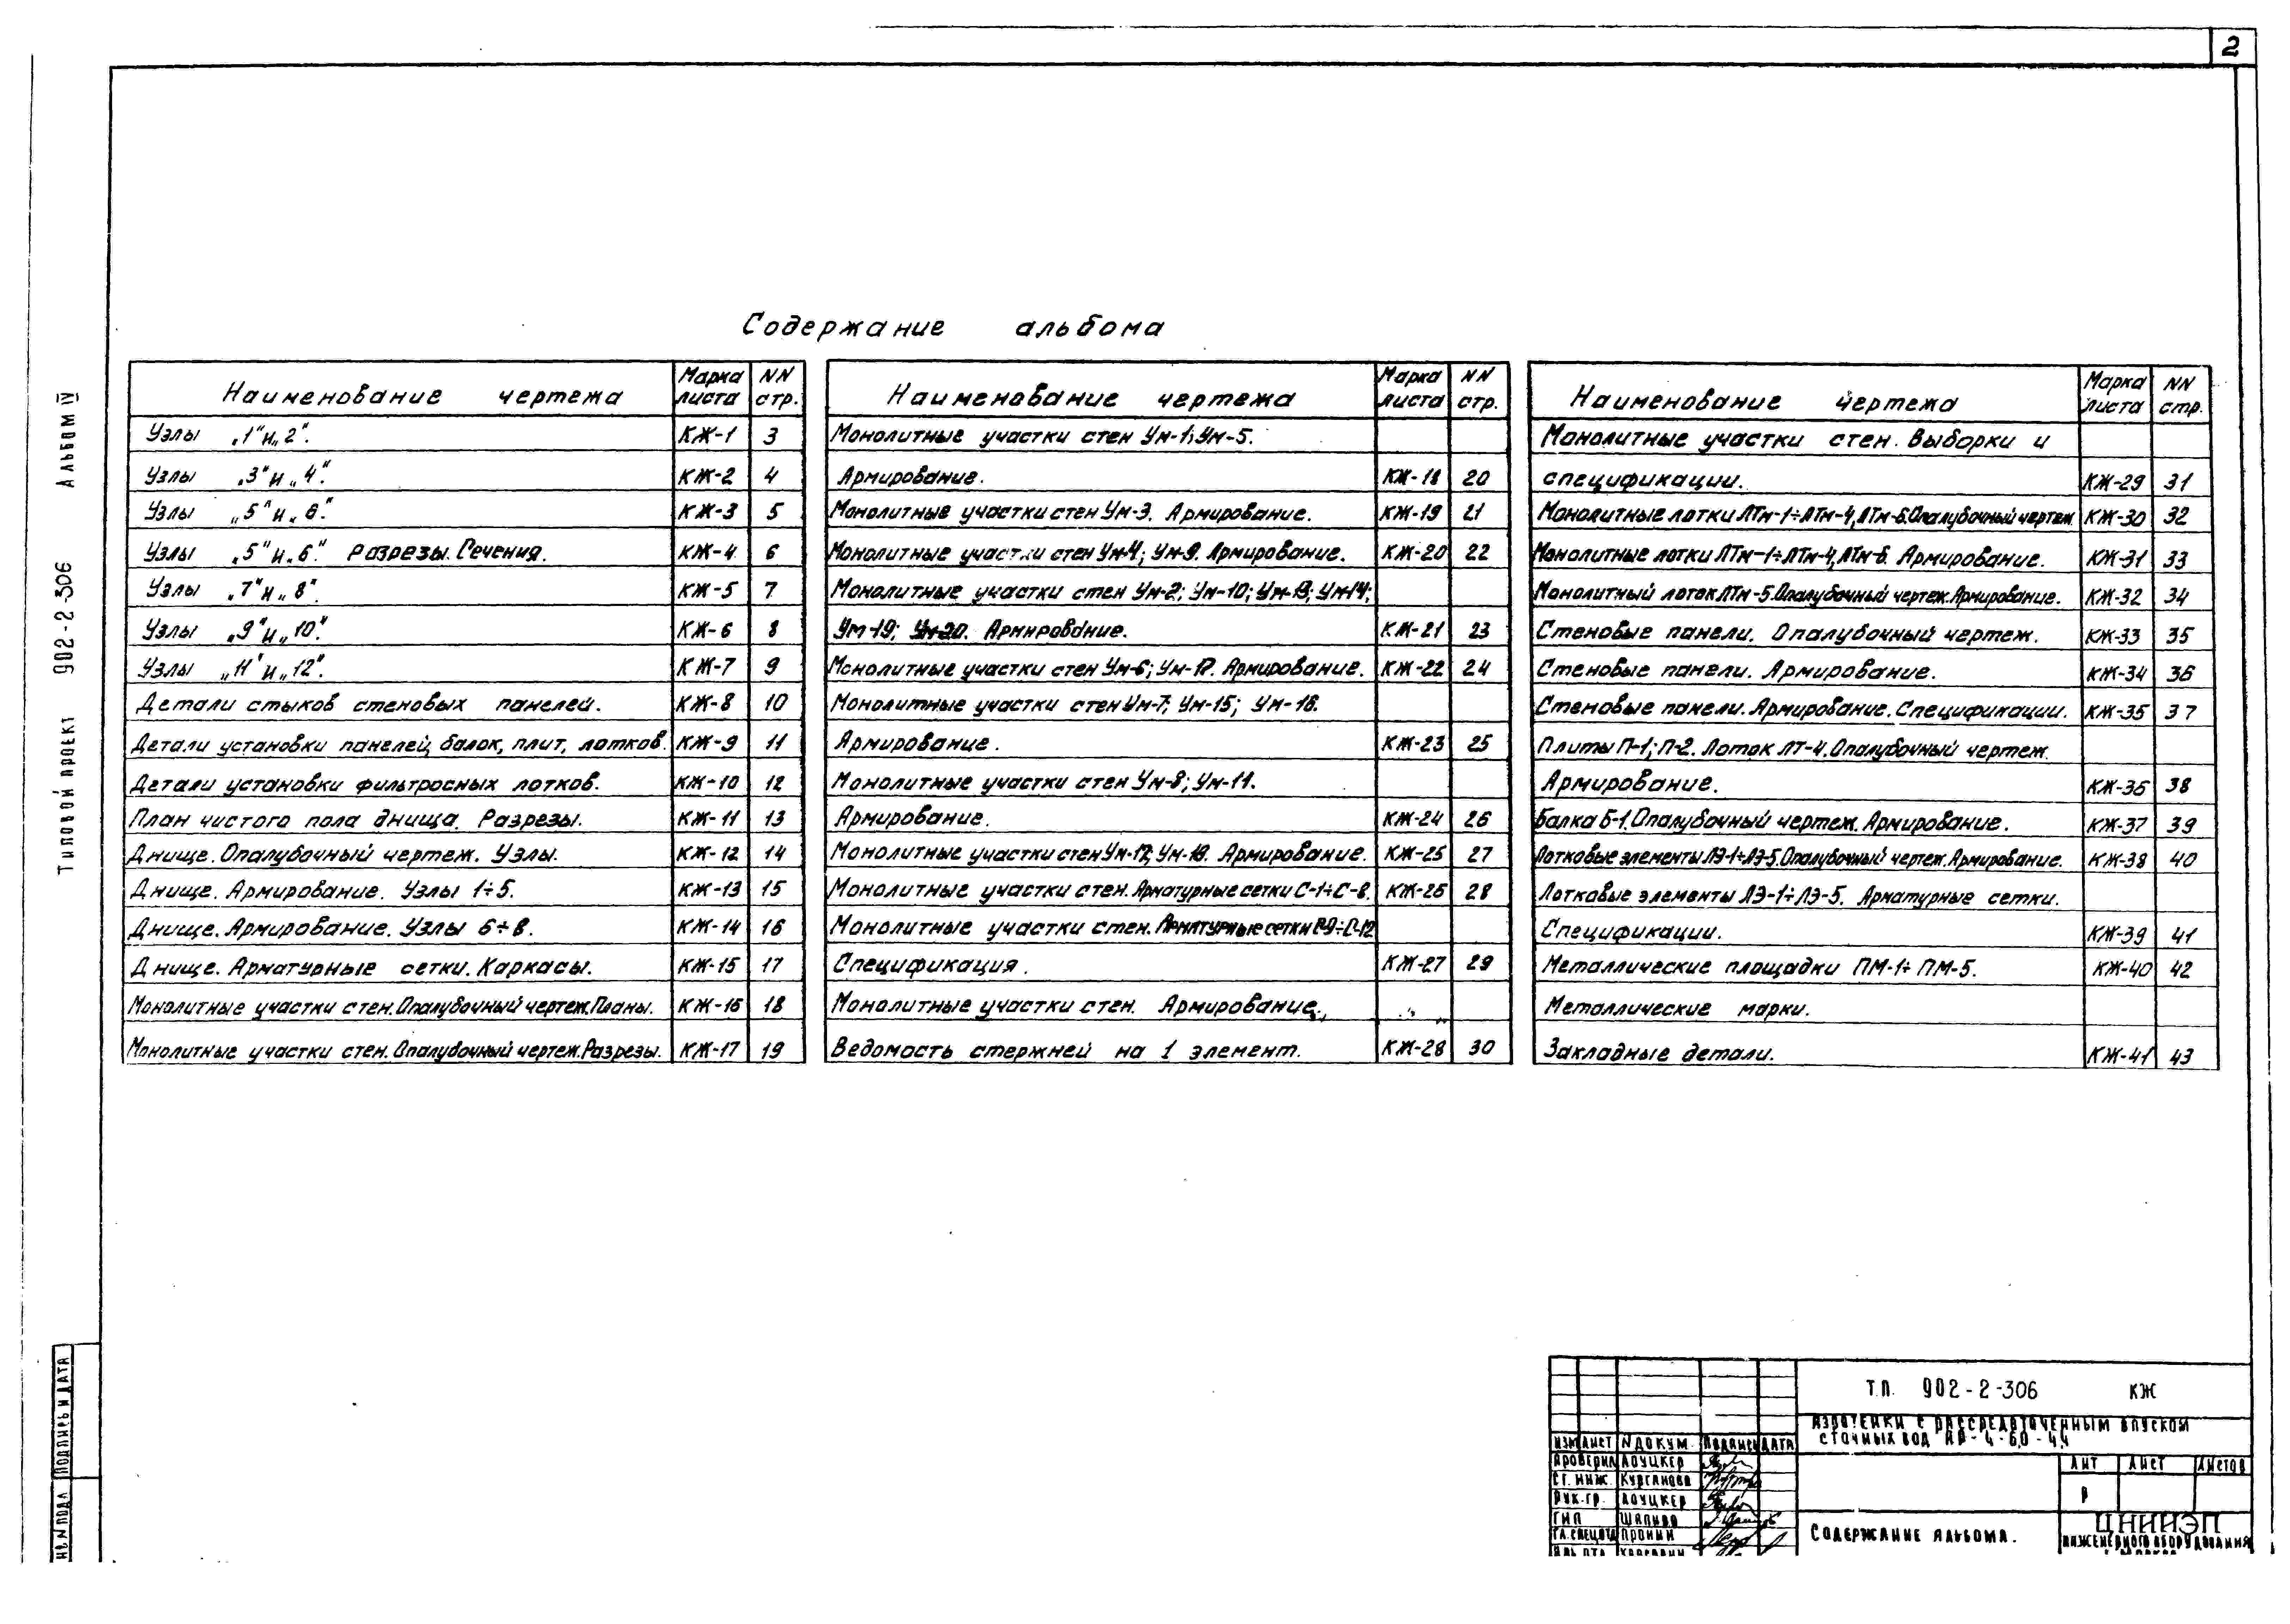 2
Содержание альбома
Наименование чертежа Марка листа NN стр.
Узлы „1“ и „2“. КЖ-1 3
Узлы „3“ и „4“. КЖ-2 4
Узлы „5“ и „6“. КЖ-3 5
Узлы „5“ и „6“. Разрезы. Сечения. КЖ-4 6
Узлы „7“ и „8“. КЖ-5 7
Узлы „9“ и „10“. КЖ-6 8
Узлы „11“ и „12“. КЖ-7 9
Детали стыков стеновых панелей. КЖ-8 10
Детали установки панелей, балок, плит, лотков. КЖ-9 11
Детали установки фильтросных лотков. КЖ-10 12
План чистого пола днища. Разрезы. КЖ-11 13
Днище. Опалубочный чертеж. Узлы. КЖ-12 14
Днище. Армирование. Узлы 1÷5. КЖ-13 15
Днище. Армирование. Узлы 6÷8. КЖ-14 16
Днище. Арматурные сетки. Каркасы. КЖ-15 17
Монолитные участки стен. Опалубочный чертеж. Планы. КЖ-16 18
Монолитные участки стен. Опалубочный чертеж. Разрезы. КЖ-17 19
Наименование чертежа Марка листа NN стр.
Монолитные участки стен Ум-1; Ум-5.
Армирование. КЖ-18 20
Монолитные участки стен Ум-3. Армирование. КЖ-19 21
Монолитные участки стен Ум-4; Ум-9. Армирование. КЖ-20 22
Монолитные участки стен Ум-2; Ум-10; Ум-13; Ум-14;
Ум-19; Ум-20. Армирование. КЖ-21 23
Монолитные участки стен Ум-6; Ум-12. Армирование. КЖ-22 24
Монолитные участки стен Ум-7; Ум-15; Ум-16.
Армирование. КЖ-23 25
Монолитные участки стен Ум-8; Ум-11.
Армирование. КЖ-24 26
Монолитные участки стен Ум-17; Ум-18. Армирование. КЖ-25 27
Монолитные участки стен. Арматурные сетки С-1÷С-8. КЖ-26 28
Монолитные участки стен. Арматурные сетки С-9÷С-12
Спецификация. КЖ-27 29
Монолитные участки стен. Армирование.
Ведомость стержней на 1 элемент. КЖ-28 30
Наименование чертежа Марка листа NN стр.
Монолитные участки стен. Выборки и
спецификации. КЖ-29 31
Монолитные лотки ЛТм-1÷ЛТм-4, ЛТм-6. Опалубочный чертеж. КЖ-30 32
Монолитные лотки ЛТм-1÷ЛТм-4, ЛТм-6. Армирование. КЖ-31 33
Монолитный лоток ЛТм-5. Опалубочный чертеж. Армирование. КЖ-32 34
Стеновые панели. Опалубочный чертеж. КЖ-33 35
Стеновые панели. Армирование. КЖ-34 36
Стеновые панели. Армирование. Спецификации. КЖ-35 37
Плиты П-1; П-2. Лоток ЛТ-4. Опалубочный чертеж.
Армирование. КЖ-36 38
Балка Б-1. Опалубочный чертеж. Армирование. КЖ-37 39
Лотковые элементы ЛЭ-1÷ЛЭ-5. Опалубочный чертеж. Армирование. КЖ-38 40
Лотковые элементы ЛЭ-1÷ЛЭ-5. Арматурные сетки.
Спецификации. КЖ-39 41
Металлические площадки ПМ-1÷ПМ-5. КЖ-40 42
Металлические марки.
Закладные детали. КЖ-41 43
Типовой проект 902-2-306 Альбом IV
Подпись и дата
Инв. N подл
Т.П. 902-2-306 КЖ
Аэротенки с рассредоточенным впуском
сточных вод АР-4-6,0-4,4
Изм Лист N докум. Подпись Дата
Проверил Лоуцкер
Ст. инж. Курганова
Рук. гр. Лоуцкер
ГИП Шапиро
Гл. спец. отд Пронин
Лит Лист Листов
Р
Содержание альбома.
ЦНИИЭП
инженерного оборудования